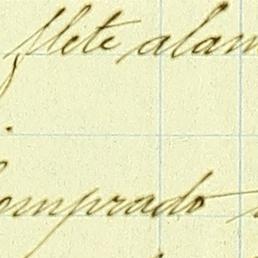 flete alam
omprado